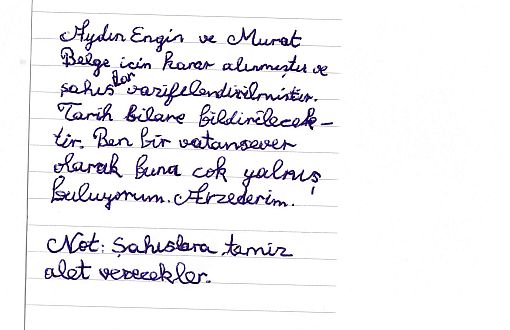 Aydın Engin ve Murat
Belge icin karar alınmıştır ve
şahıslar vazifelendirilmistir.
Tarih bilare bildirilecek-
tir. Ben bir vatansever
olarak buna cok yalnış
buluyorum. Arzederim.
Not: Şahıslara tamiz
alet verecekler.